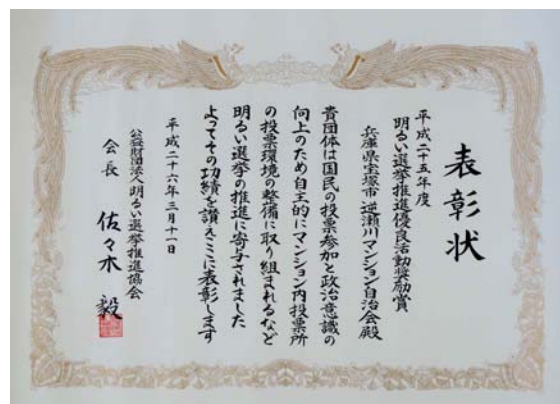 表彰状
平成二十五年度
明るい選挙推進優良活動奨励賞
兵庫県宝塚市 逆瀬川マンション自治会殿
貴団体は国民の投票参加と政治意識の
向上のため自主的にマンション内投票所
の投票環境の整備に取り組まれるなど
明るい選挙の推進に寄与されました
よってその功績を讃えここに表彰します
平成二十六年三月十一日
公益財団法人明るい選挙推進協会
会長 佐々木 毅